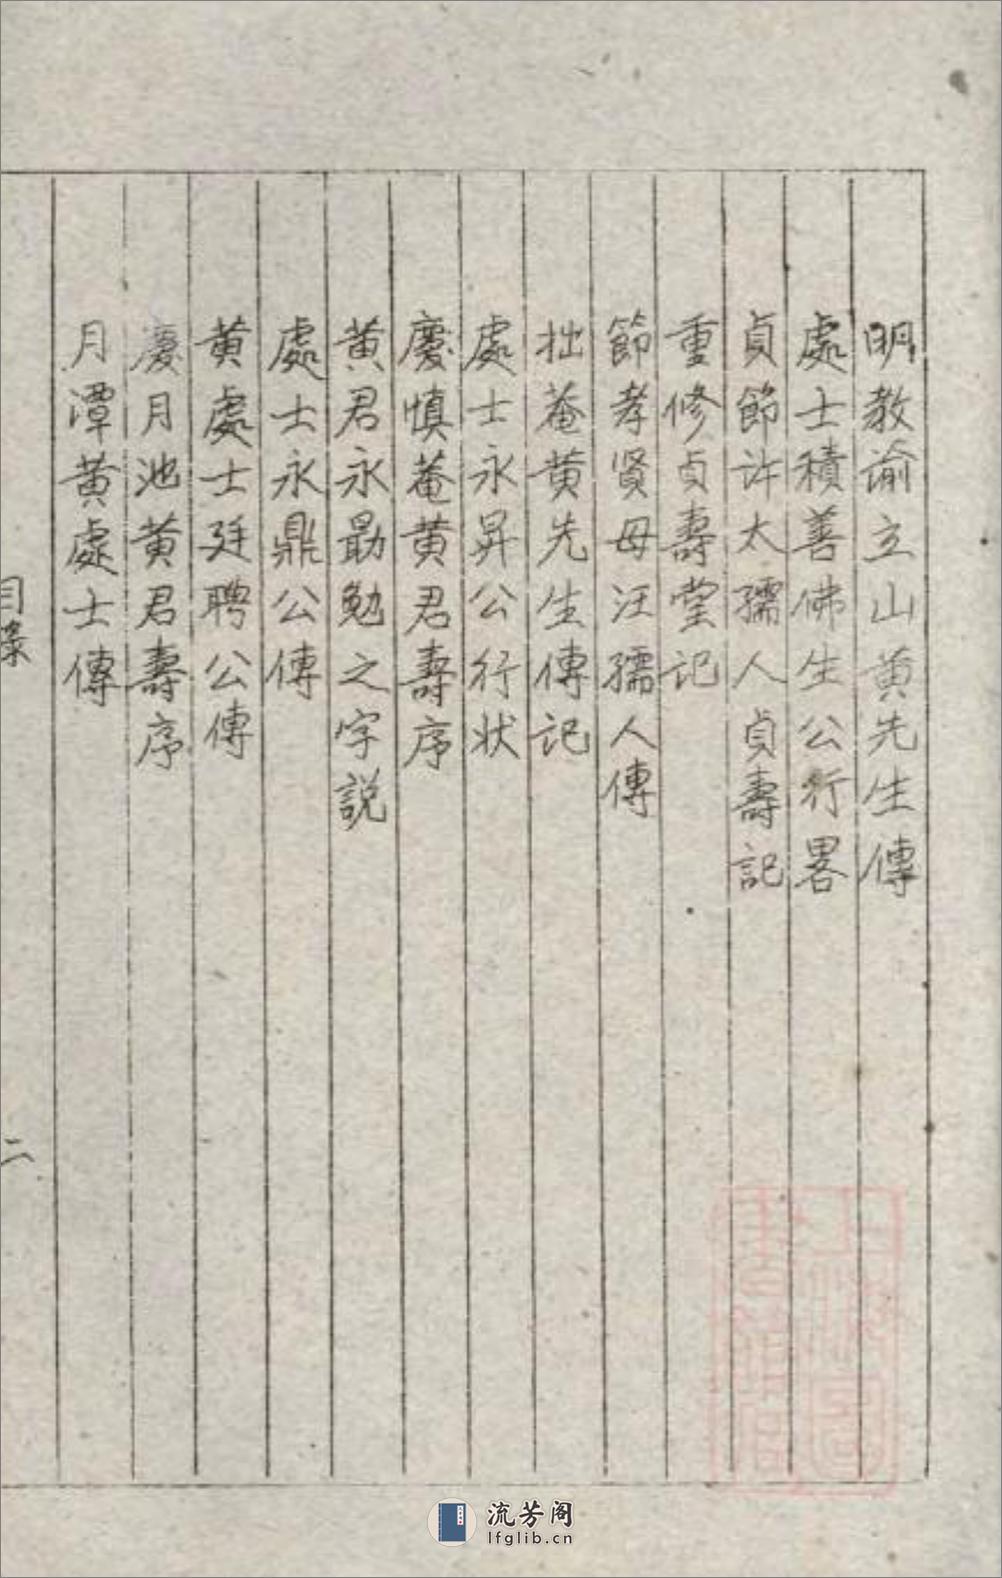 明教諭立山黄先生傳
處士積善佛生公行畧
貞節许太孺人貞壽記
重修貞壽堂记
節孝賢母汪孺人傳
拙菴黄先生傳记
處士永昇公行状
慶慎菴黄君壽序
黄君永勗勉之字説
處士永鼎公傳
黄處士廷聘公傳
慶月池黄君壽序
月潭黄處士傳
目录
二
流芳阁
lfglib.cn